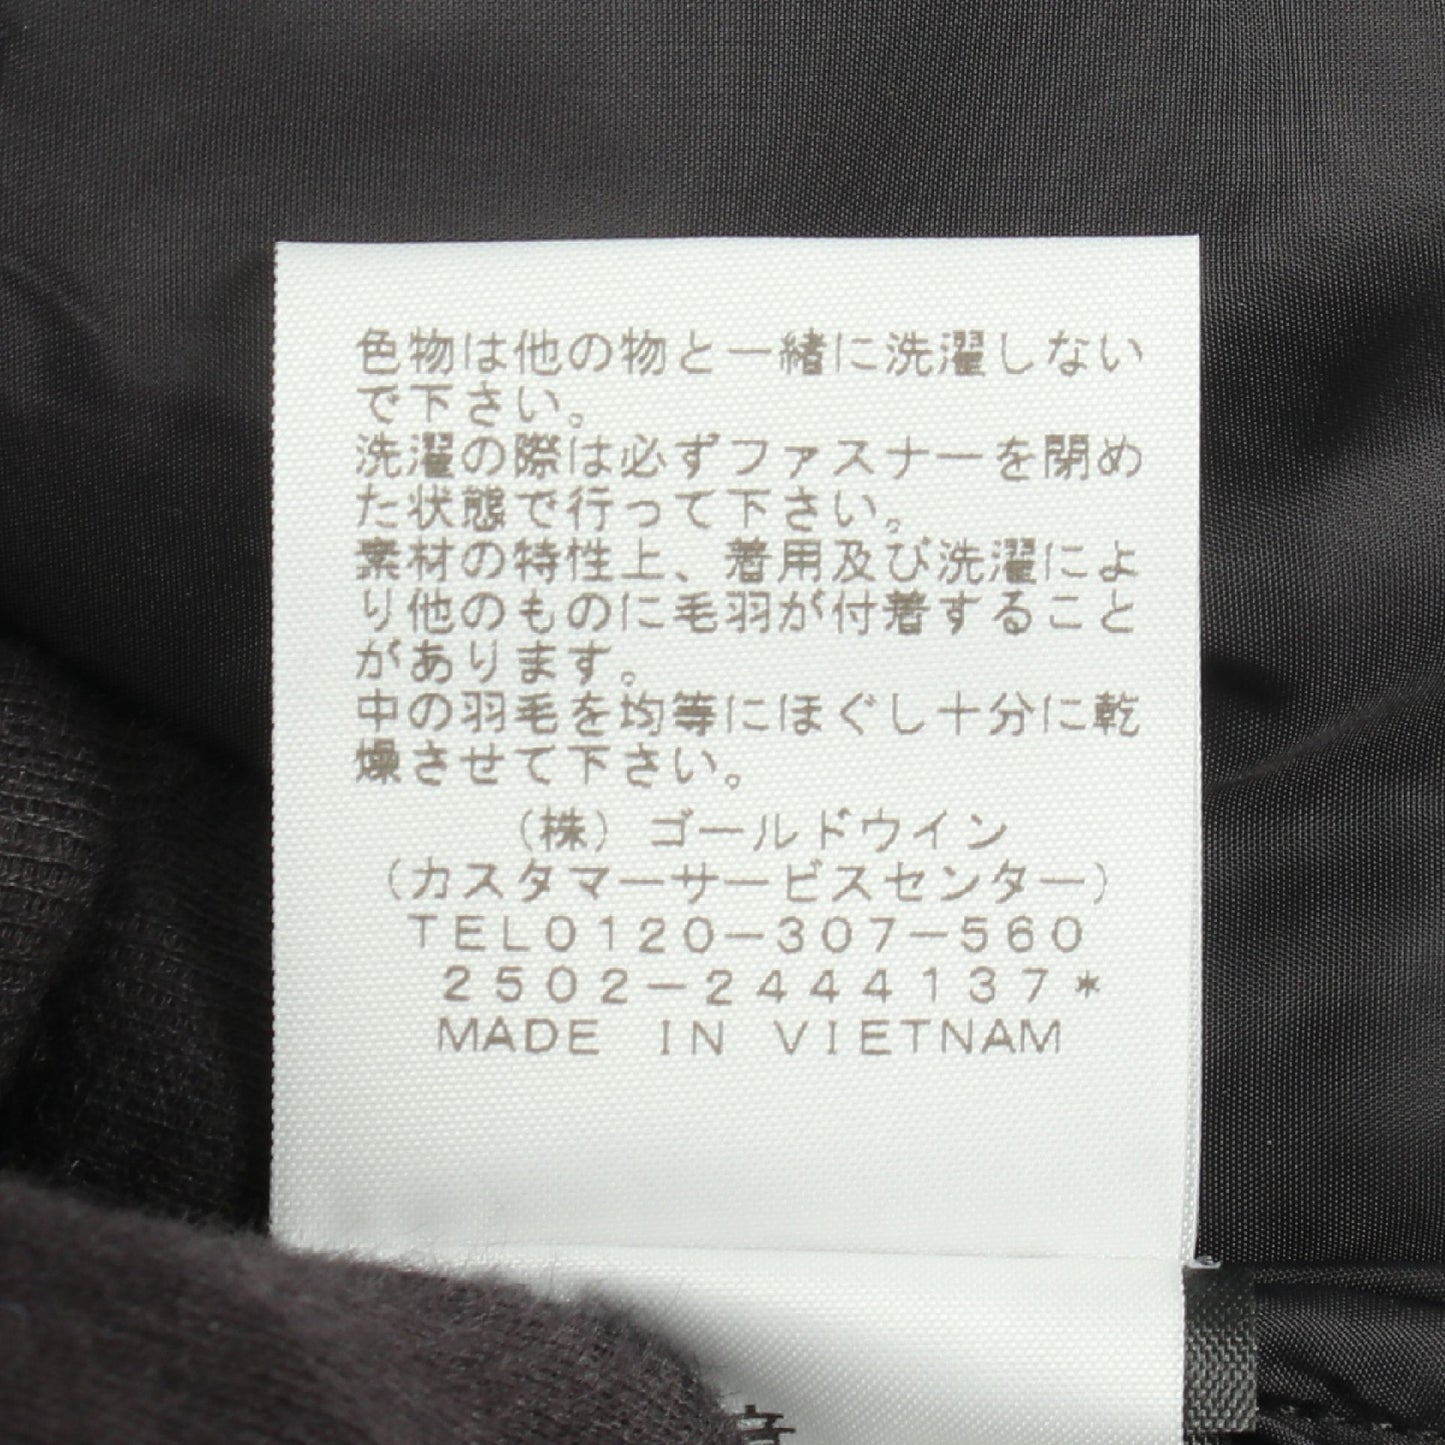 色物は他の物と一緒に洗濯しない
で下さい。
洗濯の際は必ずファスナーを閉め
た状態で行って下さい。
素材の特性上、着用及び洗濯によ
り他のものに毛羽が付着すること
があります。
中の羽毛を均等にほぐし十分に乾
燥させて下さい。
(株)ゴールドウイン
(カスタマーサービスセンター)
TEL0120-307-560
2502-2444137*
MADE IN VIETNAM